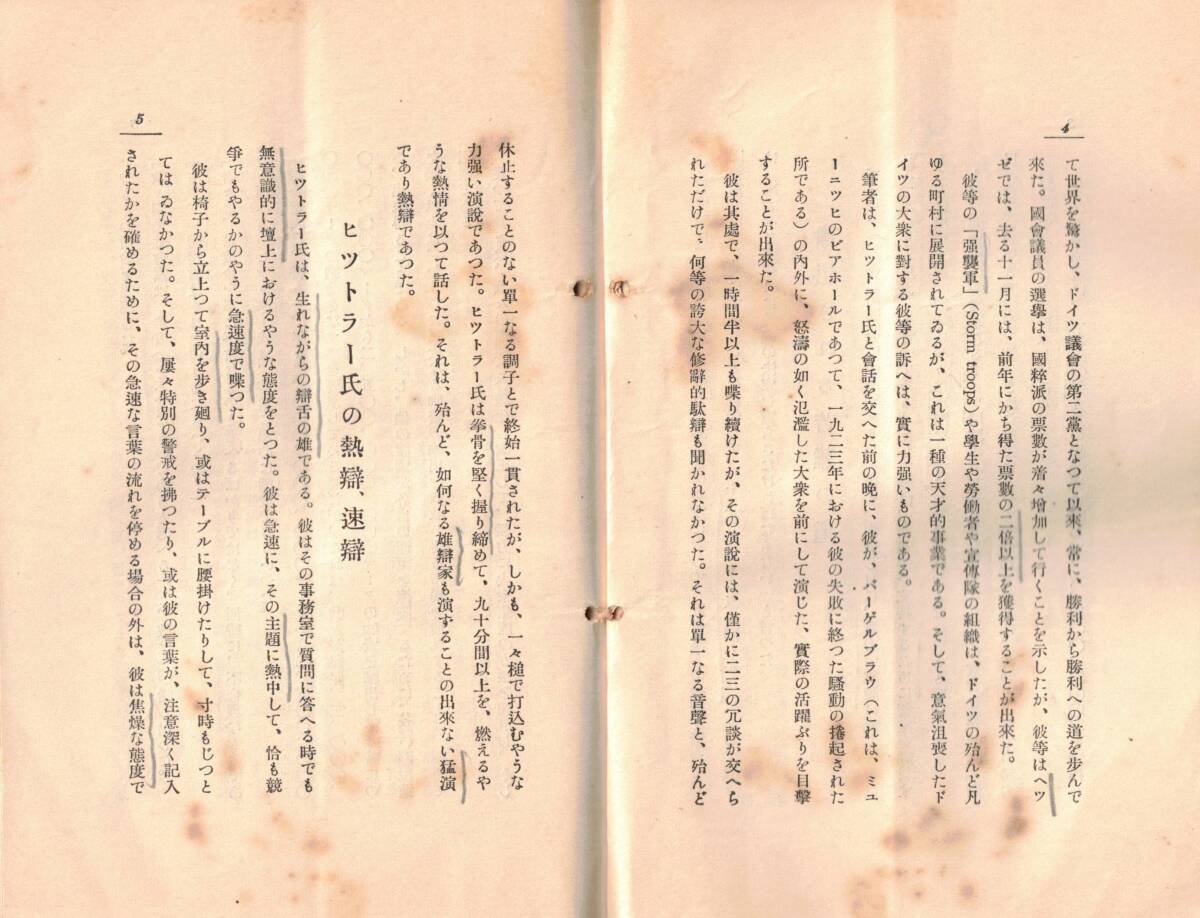 4
て世界を驚かし、ドイツ議會の第二黨となつて以來、常に、勝利から勝利への道を歩んで
來た。國會議員の選擧は、國粹派の票數が着々增加して行くことを示したが、彼等はヘツ
ゼでは、去る十一月には、前年にかち得た票數の二倍以上を獲得することが出來た。
彼等の「强襲軍」(Storm troops)や學生や勞働者や宣傳隊の組織は、ドイツの殆んど凡
ゆる町村に展開されてゐるが、これは一種の天才的事業である。そして、意氣沮喪したド
イツの大衆に對する彼等の訴へは、實に力强いものである。
筆者は、ヒツトラー氏と會話を交へた前の晩に、彼が、バーゲルブラウ(これは、ミユ
ーニツヒのビアホールであつて、一九二三年における彼の失敗に終つた騷動の捲起された
所である)の內外に、怒濤の如く氾濫した大衆を前にして演じた、實際の活躍ぶりを目擊
することが出來た。
彼は其處で、一時間半以上も喋り續けたが、その演說には、僅かに二三の冗談が交へら
れただけで、何等の誇大な修辭的駄辯も聞かれなかつた。それは單一なる音聲と、殆んど
5
休止することのない單一なる調子とで終始一貫されたが、しかも、一々槌で打込むやうな
力强い演說であつた。ヒツトラー氏は拳骨を堅く握り締めて、九十分間以上を、燃えるや
うな熱情を以つて話した。それは、殆んど、如何なる雄辯家も演ずることの出來ない猛演
であり熱辯であつた。
ヒツトラー氏の熱辯、速辯
ヒツトラー氏は、生れながらの辯舌の雄である。彼はその事務室で質問に答へる時でも
無意識的に壇上におけるやうな態度をとつた。彼は急速に、その主題に熱中して、恰も競
爭でもやるかのやうに急速度で喋つた。
彼は椅子から立上つて室內を步き廻り、或はテーブルに腰掛けたりして、寸時もじつと
ては ゐなかつた。そして、屢々特別の警戒を拂つたり、或は彼の言葉が、注意深く記入
されたかを確めるために、その急速な言葉の流れを停める場合の外は、彼は焦燥な態度で